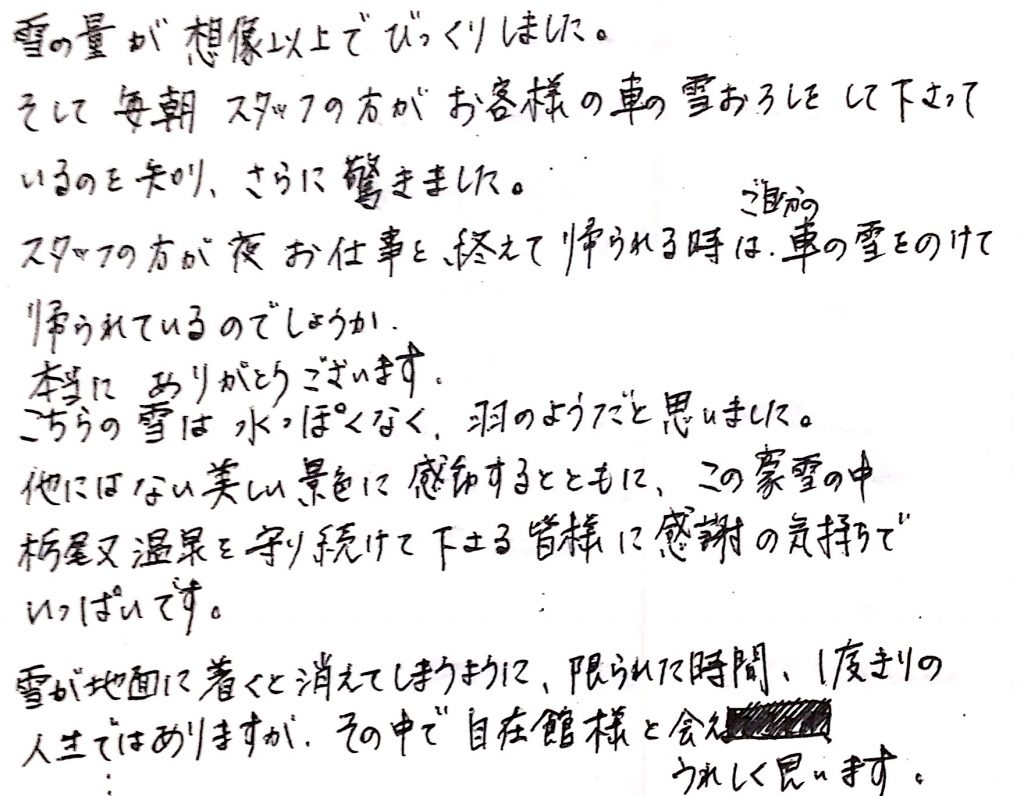 雪の量が想像以上でびっくりしました。
そして毎朝スタッフの方がお客様の車の雪おろしをして下さって
いるのを知り、さらに驚きました。
スタッフの方が夜お仕事を終えて帰られる時は、ご自分の車の雪をのけて
帰られているのでしょうか.
本当にありがとうございます.
こちらの雪は水っぽくなく、羽のようだと思いました。
他にはない美しい景色に感動するとともに、この豪雪の中
栃尾又温泉を守り続けて下さる皆様に感謝の気持ちで
いっぱいです。
雪が地面に着くと消えてしまうように、限られた時間、1度きりの
人生ではありますが、その中で自在館様と会え
うれしく思います。